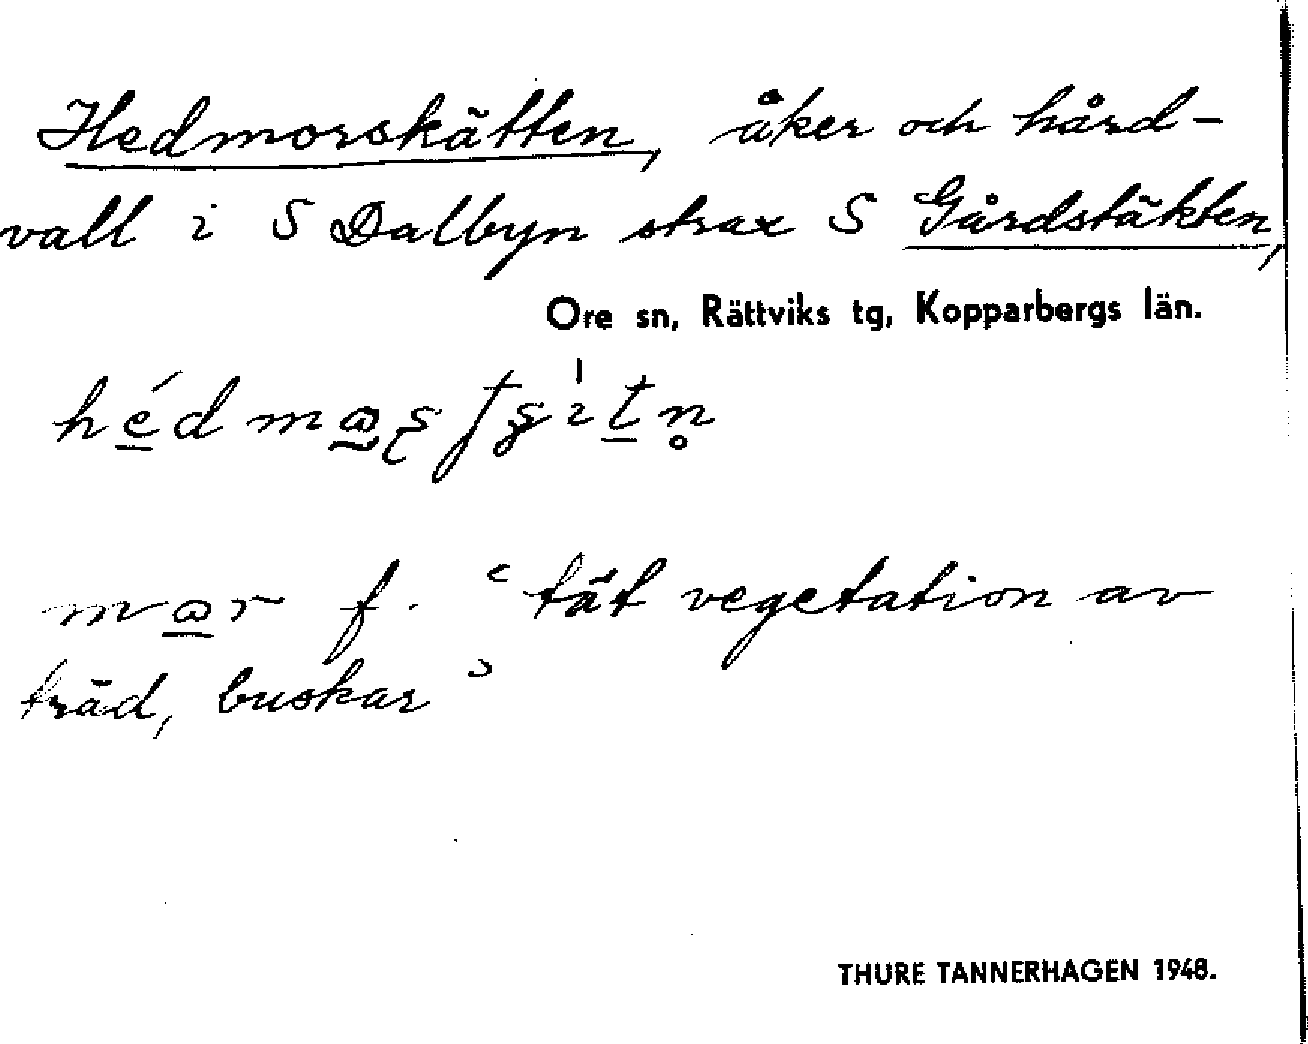 Hedmorskätten, åker och hård-
vall i S Dalbyn strax S Gårdstäkten,
Ore sn, Rättviks tg, Kopparbergs län.
mɷr f. ‘tät vegetation av
träd, buskar’
THURE TANNERHAGEN 1948.